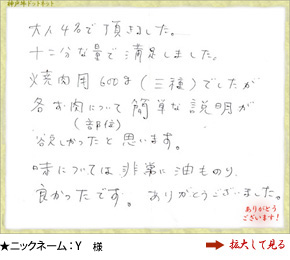 神戸牛ドットネット
大人4名で頂きました。
十二分な量で満足しました。
焼肉用600g(三種)でしたが
各お肉について簡単な説明が
(部位)
欲しかったと思います。
味については非常に油ものり、
良かったです。ありがとうございました。
ありがとう
ございます!
★ニックネーム:Y 様
拡大して見る